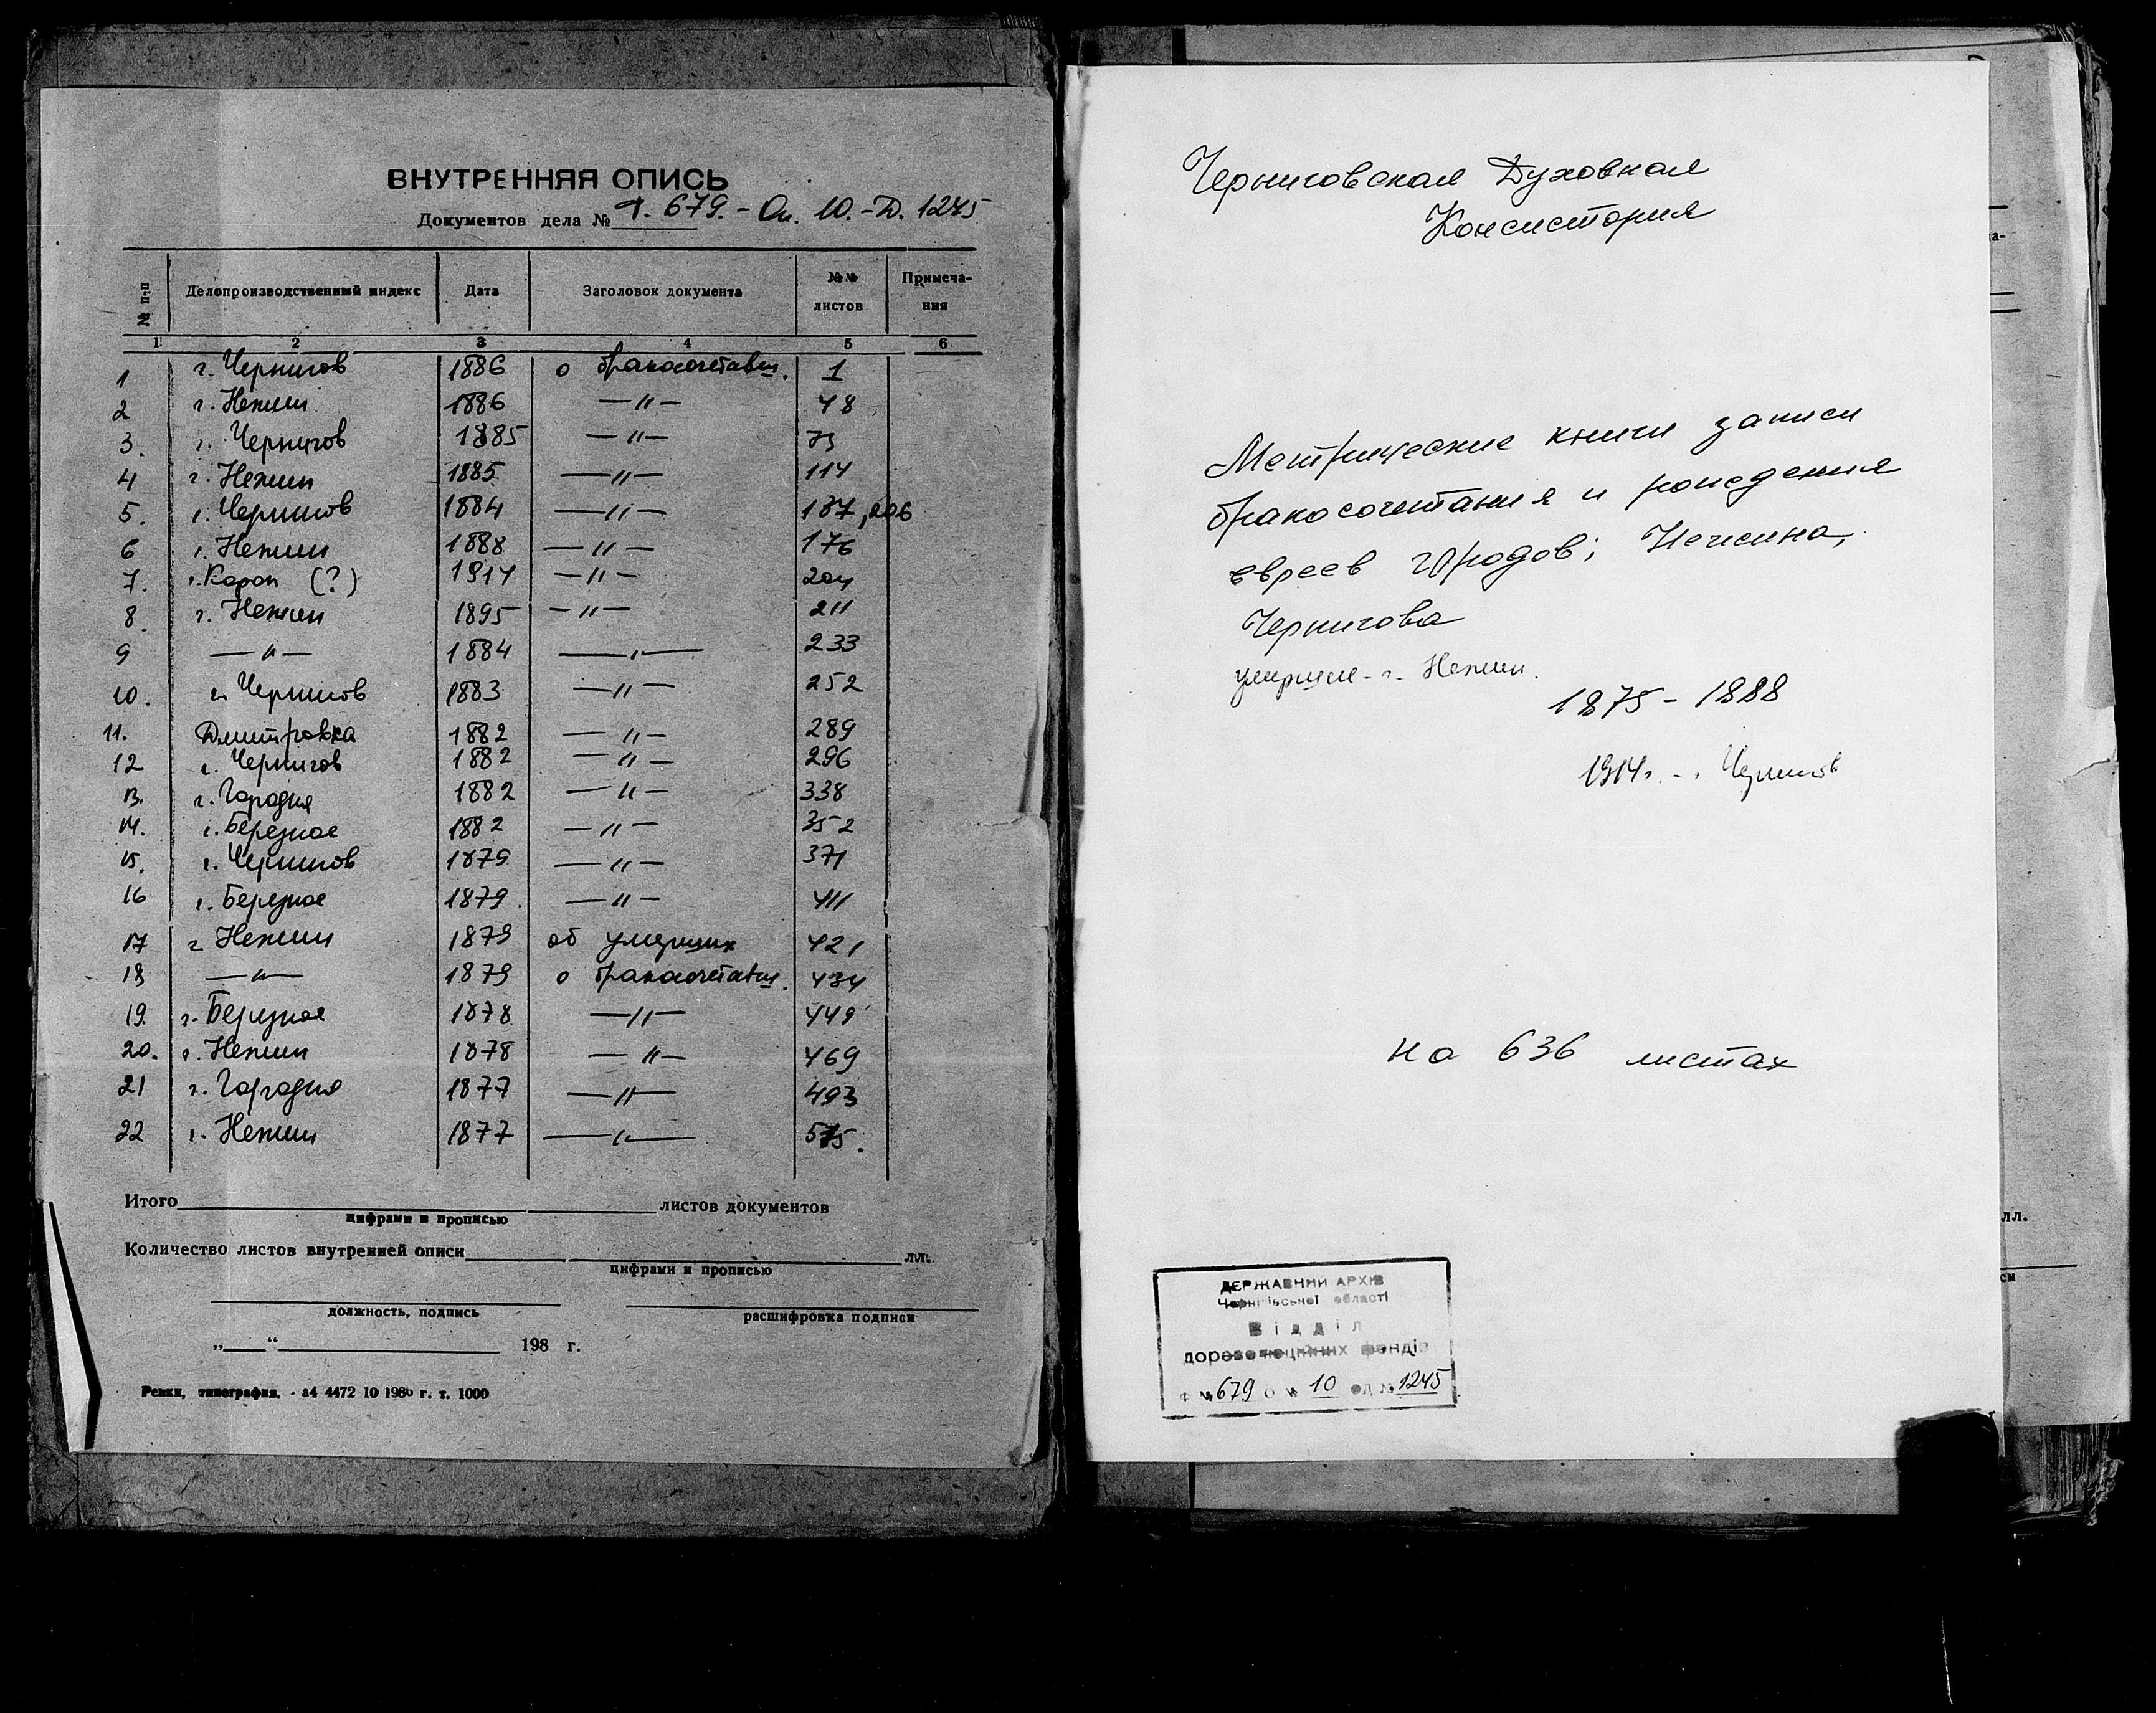 ВНУТРЕННЯЯ ОПИСЬ
Документов дела № Ф. 679.- Оп. 10.-Д. 1245
№ п-п Делопроизводственный индекс Дата Заголовок документа №№ листов Примеча-ния
1 2 3 4 5 6
1 г. Чернигов 1886 о бракосочетавш. 1
2 г. Нежин 1886 —〃— 48
3. г. Чернигов 1885 —〃— 73
4 г. Нежин 1885 —〃— 114
5. г. Чернигов 1884 —〃— 137, 206
6 г. Нежин 1888 —〃— 176
7. г. Короп (?) 1914 —〃— 204
8. г. Нежин 1895 —〃— 211
9 —〃— 1884 —〃— 233
10. г. Чернигов 1883 —〃— 252
11. Дмитровка 1882 —〃— 289
12 г. Чернигов 1882 —〃— 296
13. г. Городня 1882 —〃— 338
14. г. Березное 1882 —〃— 352
15. г. Чернигов 1879 —〃— 371
16 г. Березное 1879. —〃— 411
17 г Нежин 1879 об умерших 421
18 —〃— 1879 о бракосочетавш. 434
19. г. Березное 1878 —〃— 449
20. г. Нежин 1878 —〃— 469
21 г. Городня 1877 —〃— 493
22 г. Нежин 1877 —〃— 575.
Итого листов документов
цифрами и прописью
Количество листов внутренней описи лл.
цифрами и прописью
должность, подпись расшифровка подписи
„ “ 198 г.
Репки, типография. з4 4472 10 1986 г. т. 1000
Черниговская Духовная
Консистория
Метрические книги записи
бракосочетания и рождения
евреев городов; Нежина,
Чернигова
умершие - г. Нежин.
1875 - 1888
1914г. - г. Чернигов
на 636 листах
ДЕРЖАВНИЙ АРХІВ
Чернігівської області
Відділ
дореволюційних фондів
Ф № 679 О № 10 од № 1245
лл.